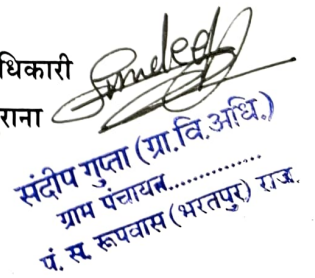 धिकारी
राना
संदीप गुप्ता (ग्रा.वि.अधि.)
ग्राम पंचायत..............
पं. स. रूपवास (भरतपुर) राज.